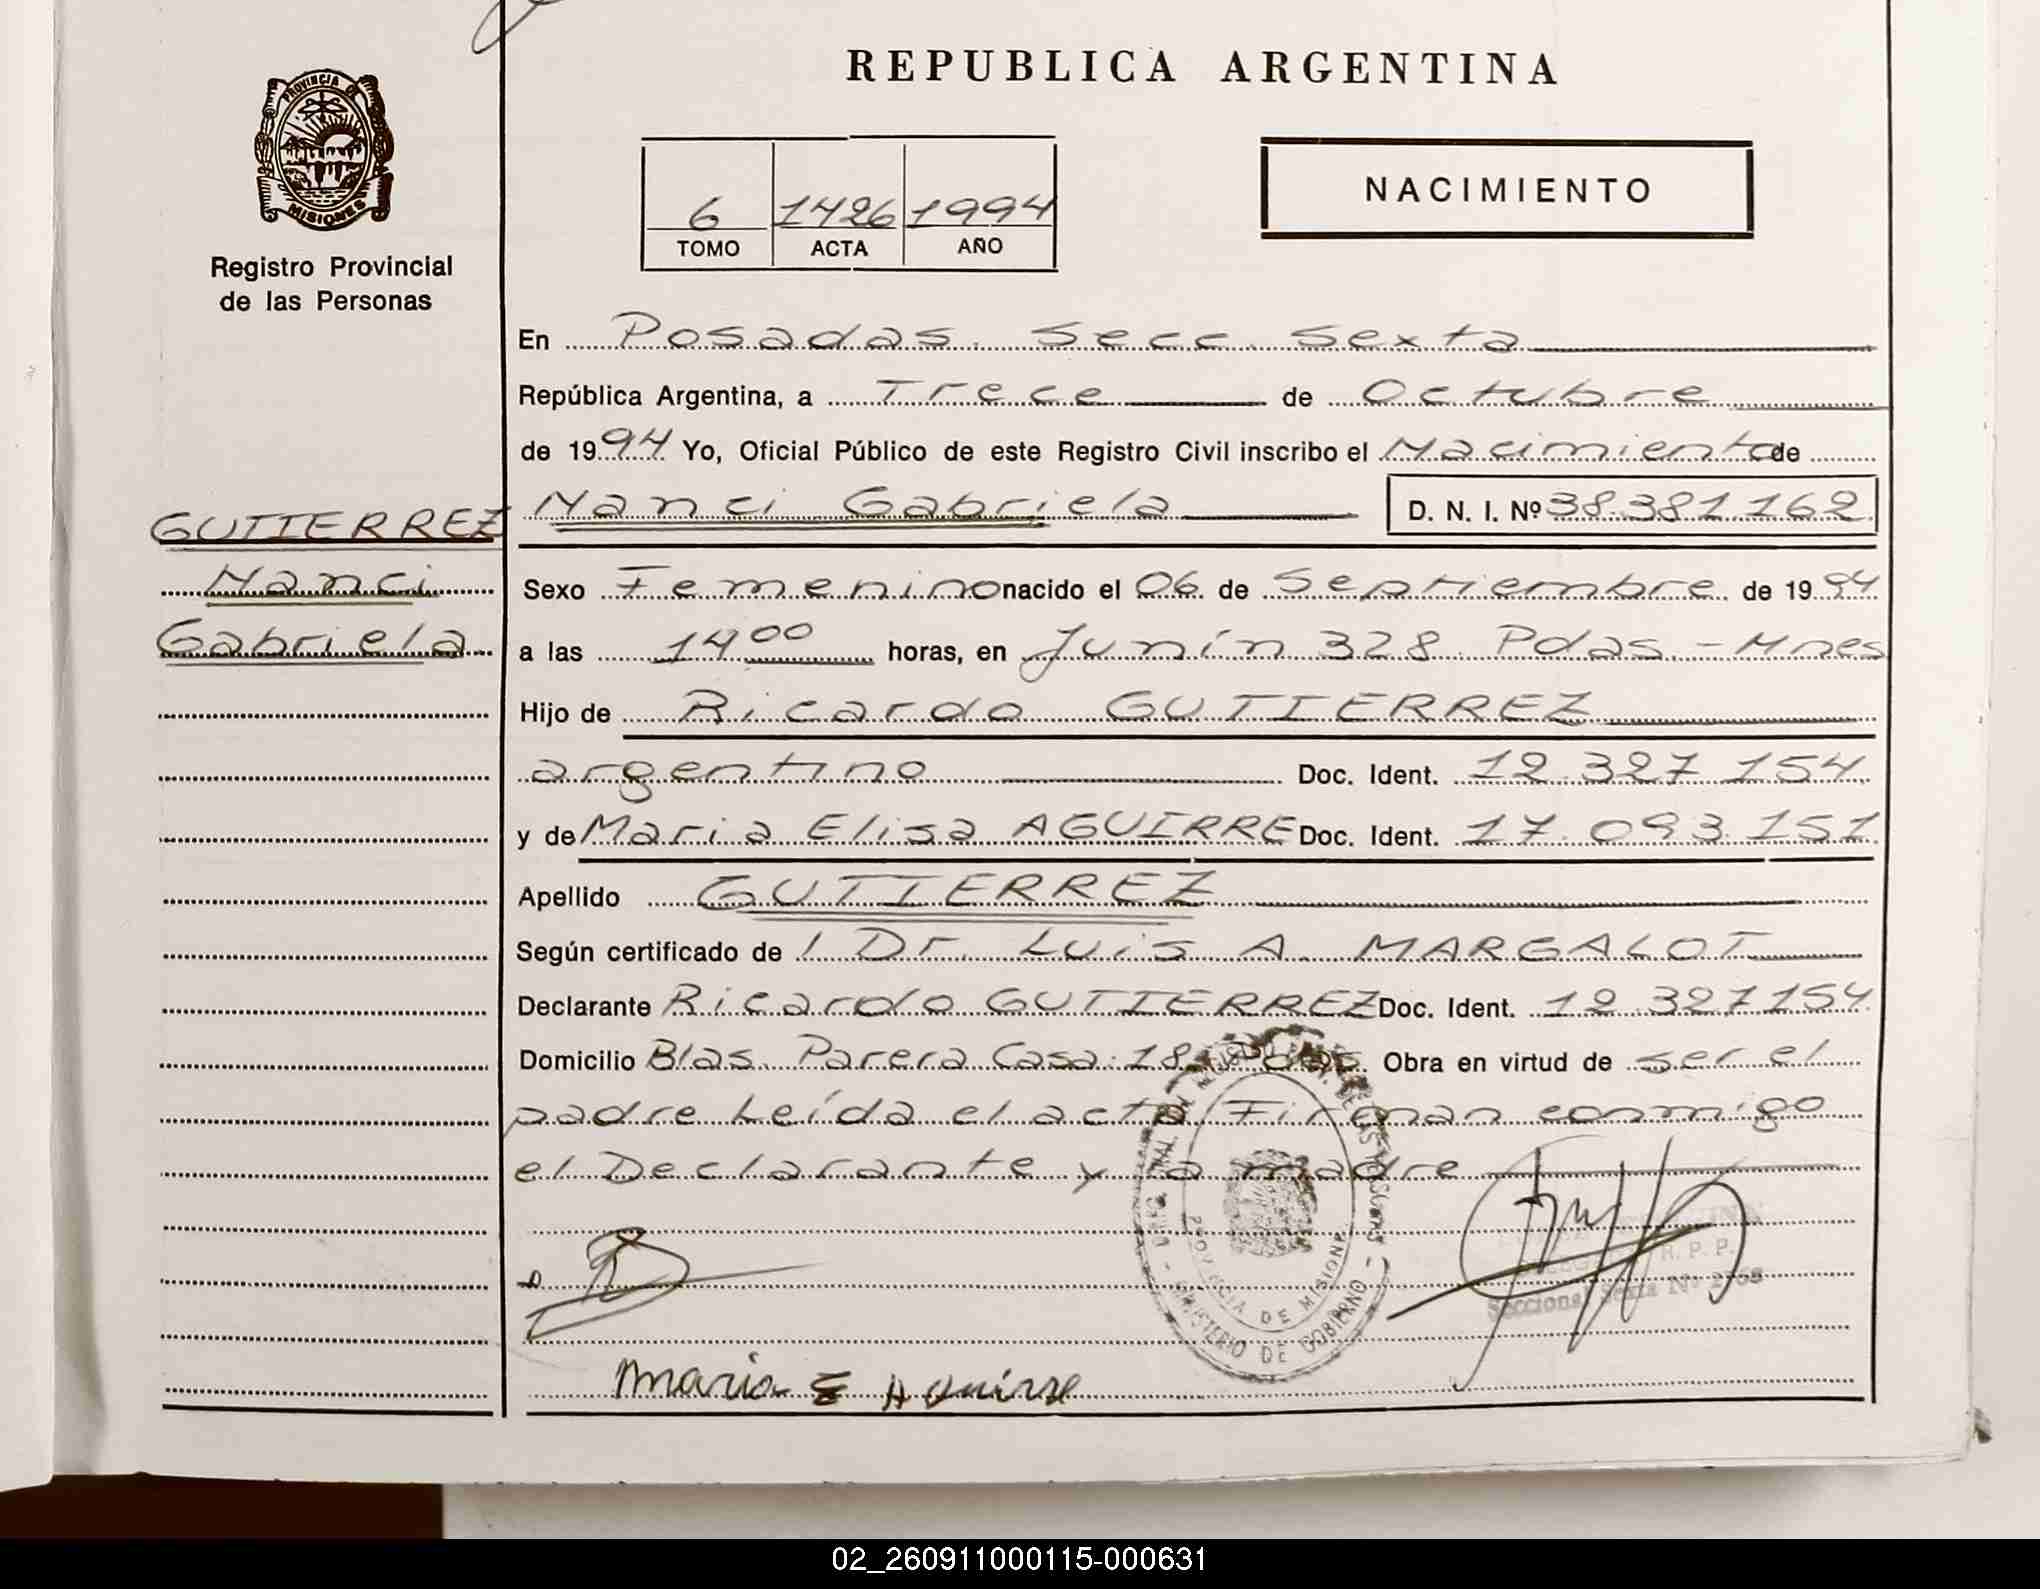 REPUBLICA ARGENTINA
PROVINCIA DE
MISIONES
Registro Provincial
de las Personas
6 1426 1994
TOMO ACTA AÑO
NACIMIENTO
En Posadas. Secc. Sexta
República Argentina, a Trece de Octubre
de 1994 Yo, Oficial Público de este Registro Civil inscribo el Nacimiento de
Nanci Gabriela D. N. I. Nº 38.381.162
GUTIERREZ
Nanci
Gabriela
Sexo Femenino nacido el 06 de Septiembre de 1994
a las 14 00 horas, en Junín 328. Pdas. - Mnes
Hijo de Ricardo GUTIERREZ
argentino Doc. Ident. 12.327.154
y de Maria Elisa AGUIRRE Doc. Ident. 17.093.151
Apellido GUTIERREZ
Según certificado de l Dr. Luis A. MARGALOT
Declarante Ricardo GUTIERREZ Doc. Ident. 12.327.154
Domicilio Blas. Parera Casa: 18. Pdas. Obra en virtud de ser el
padre Leída el acta Firman conmigo
el Declarante y la madre
PROVINCIA DE MISIONES
MINISTERIO DE GOBIERNO
R. P. P.
Seccional Sexta Nº
Maria E Aguirre
02_260911000115-000631